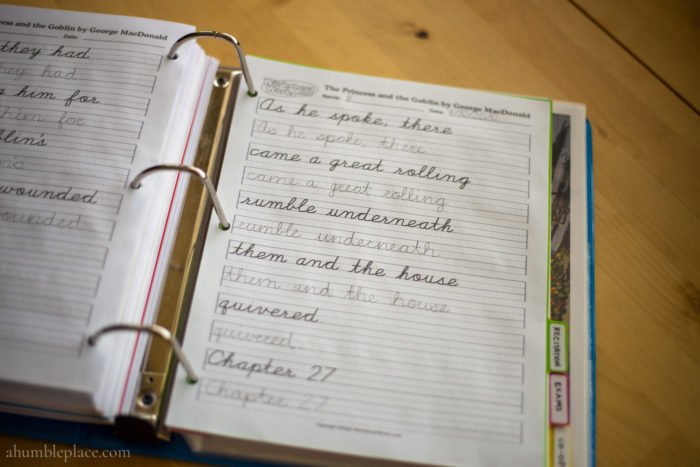 ess and the Goblin by George MacDonald
Date:
they had
they had
g him for
him for
lin's
wounded
wounded
The Princess and the Goblin by George MacDonald
Name:
Date:
As he spoke, there
As he spoke, there
came a great rolling
came a great rolling
rumble underneath
rumble underneath
them and the house
them and the house
quivered.
quivered.
Chapter 27
Chapter 27
RECITATION
EXAMS
CO-OP
ahumbleplace.com